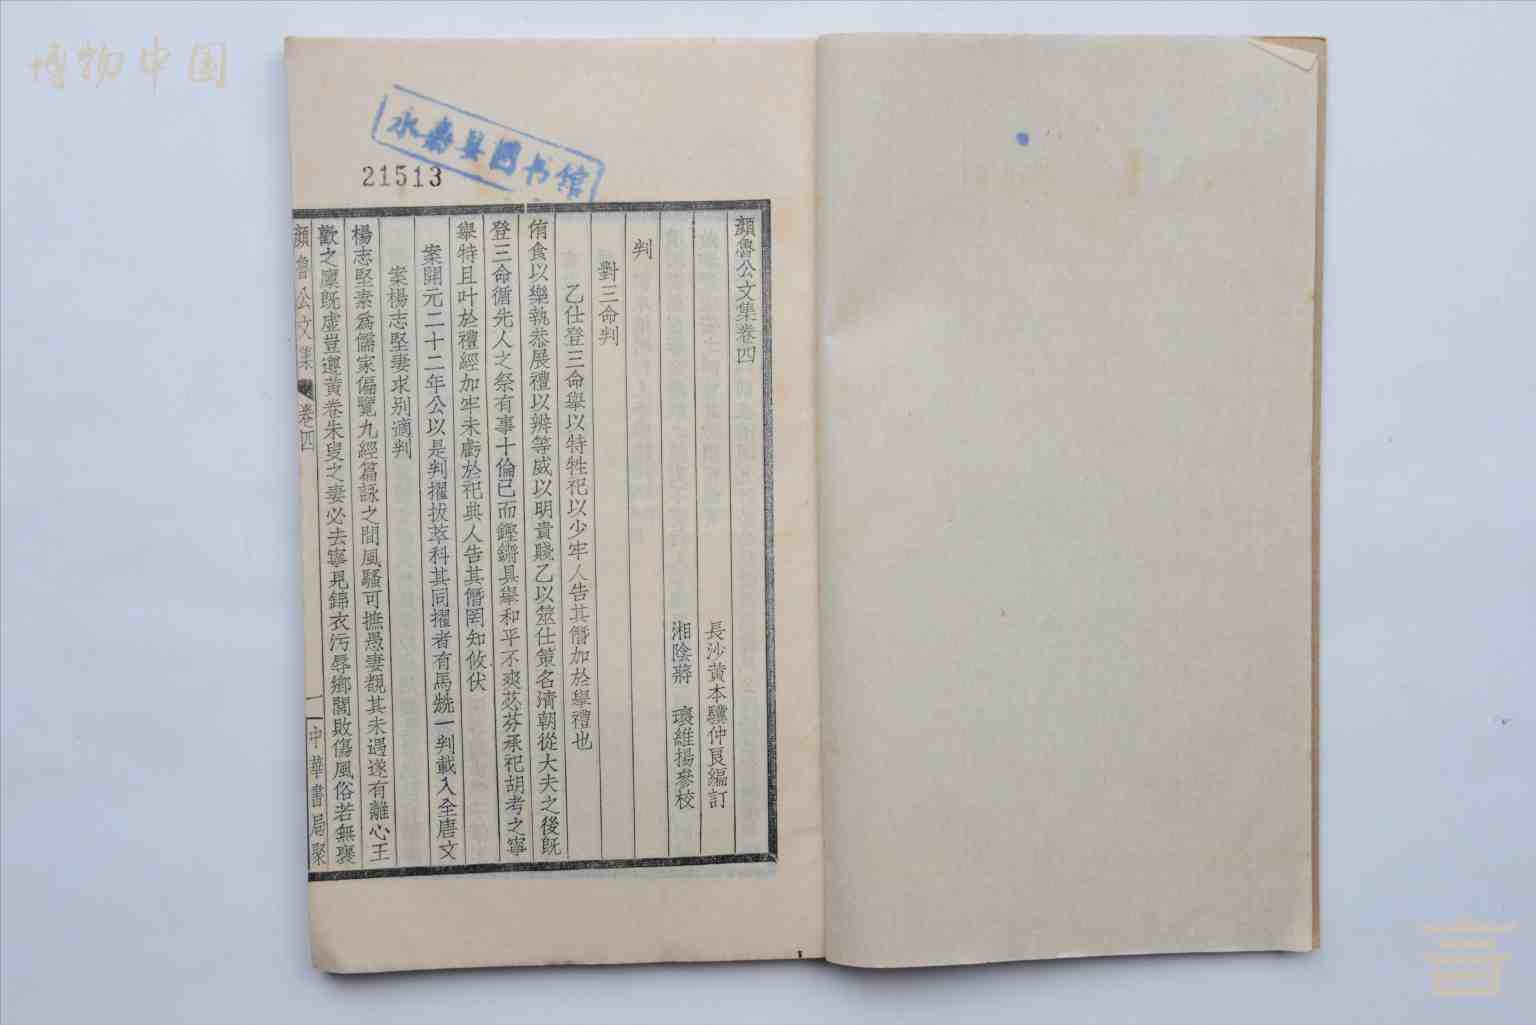 博物中国
永寿县图书馆
21513
顏魯公文集卷四
長沙黃本驥仲良編訂
湘陰蔣　瓌維揚參校
判
對三命判
乙仕登三命舉以特牲祀以少牢人告其僭加於舉禮也
侑食以樂執恭展禮以辨等威以明貴賤乙以筮仕策名清朝從大夫之後既
登三命循先人之祭有事十倫已而鏗鏘具舉和平不爽苾芬承祀胡考之寧
舉特且叶於禮經加牢未虧於祀典人告其僭罔知攸伏
案開元二十二年公以是判擢拔萃科其同擢者有馬兟一判載入全唐文
案楊志堅妻求別適判
楊志堅素為儒家徧覽九經篇詠之間風騷可摭愚妻覩其未遇遂有離心王
歡之廩旣虛豈遵黃卷朱叟之妻必去寧見錦衣污辱鄉閭敗傷風俗若無褒
顏魯公文集　卷四　一　中華書局聚